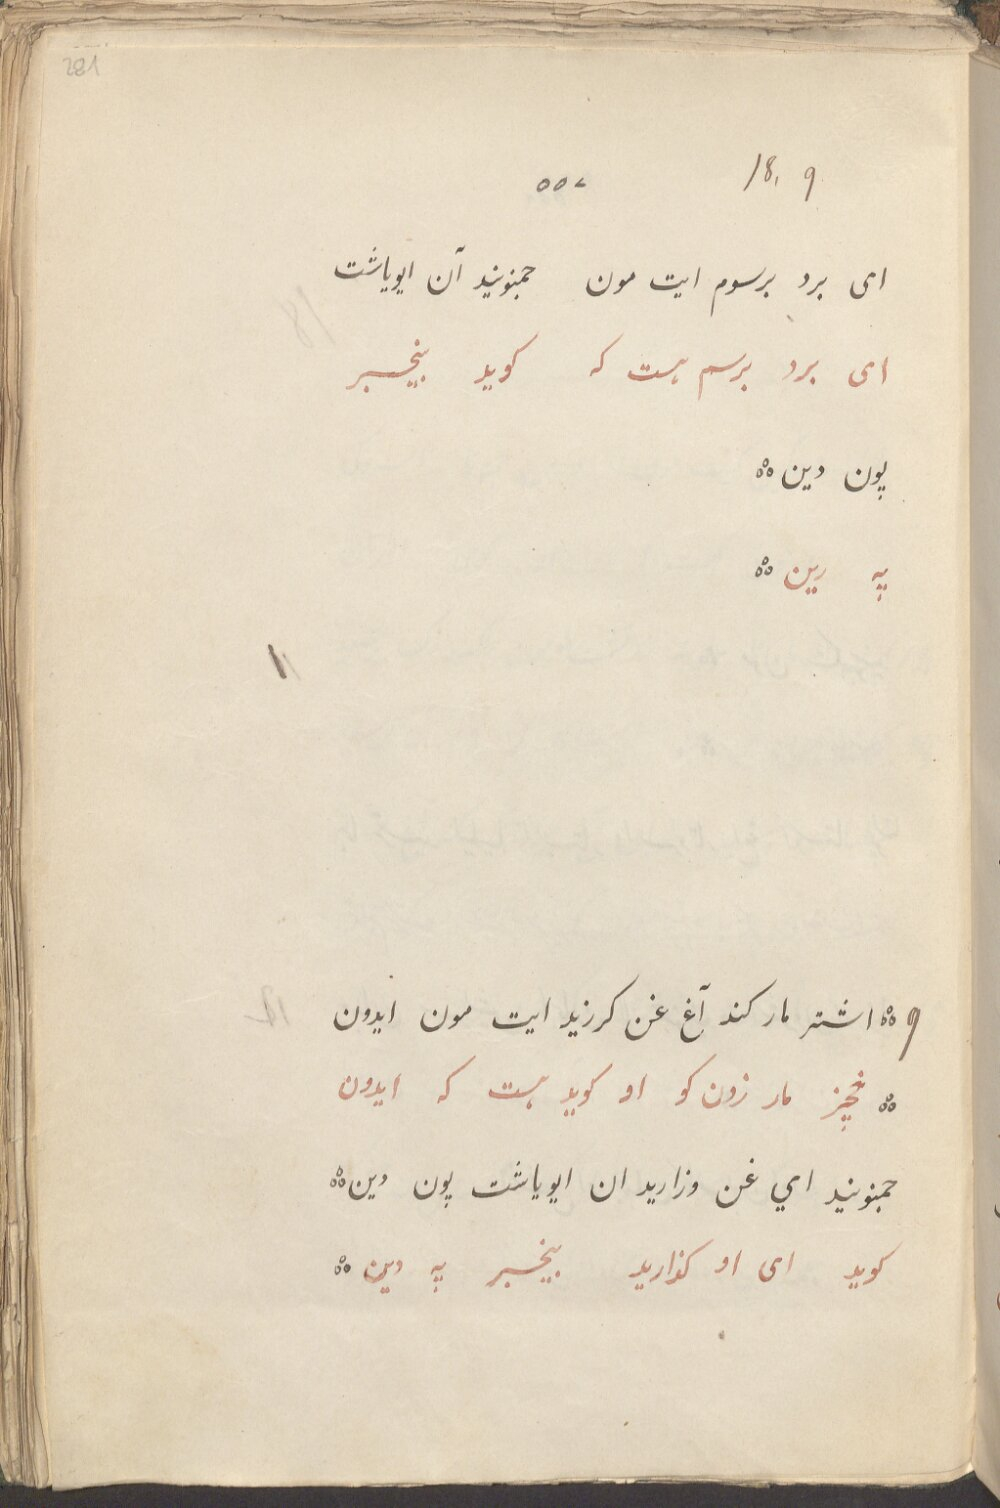 281
18, 9
ای برد برسوم ایت مون جمنونید آن ایویاشت
ای برد برسم هست که کوید بیخبر
پون دین
په رین
اشتر مار کند آغ غن کرزید ایت مون ایدون
مار زون کو او کوید هست که ایدون
جمنونید اي غن وزارید ان ایویاشت پون دین
کوید ای او کذارید بیخبر په دین